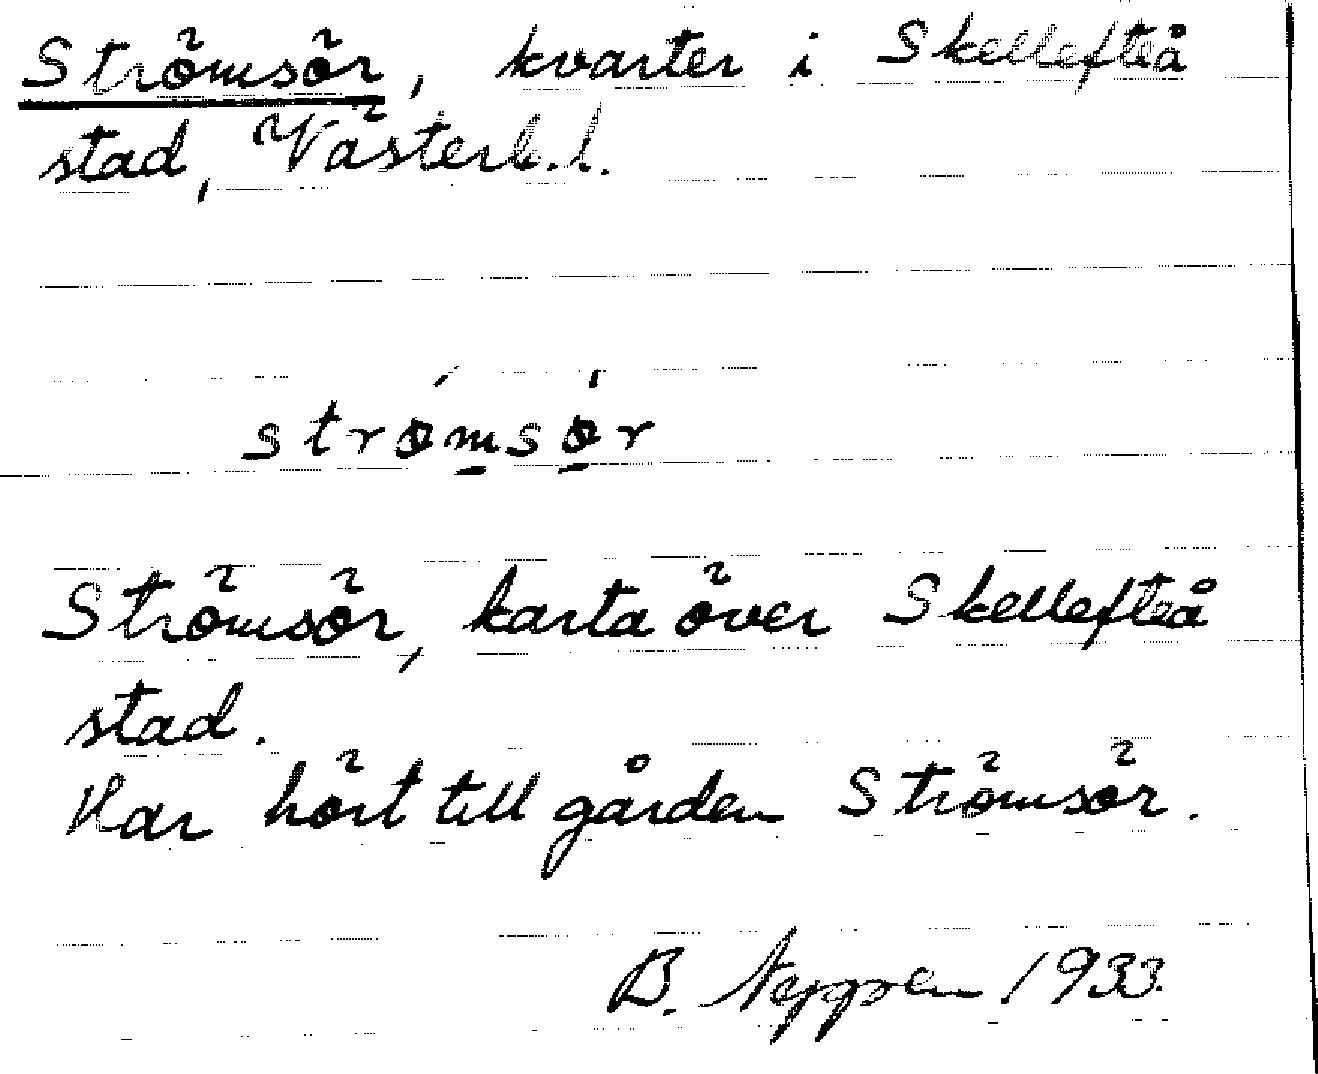 Strömsör, kvarter i Skellefteå
stad, Västerb.l.
strømsør
Strömsör, karta över Skellefteå
stad.
Har hört till gården Strömsör.
B. 1933.